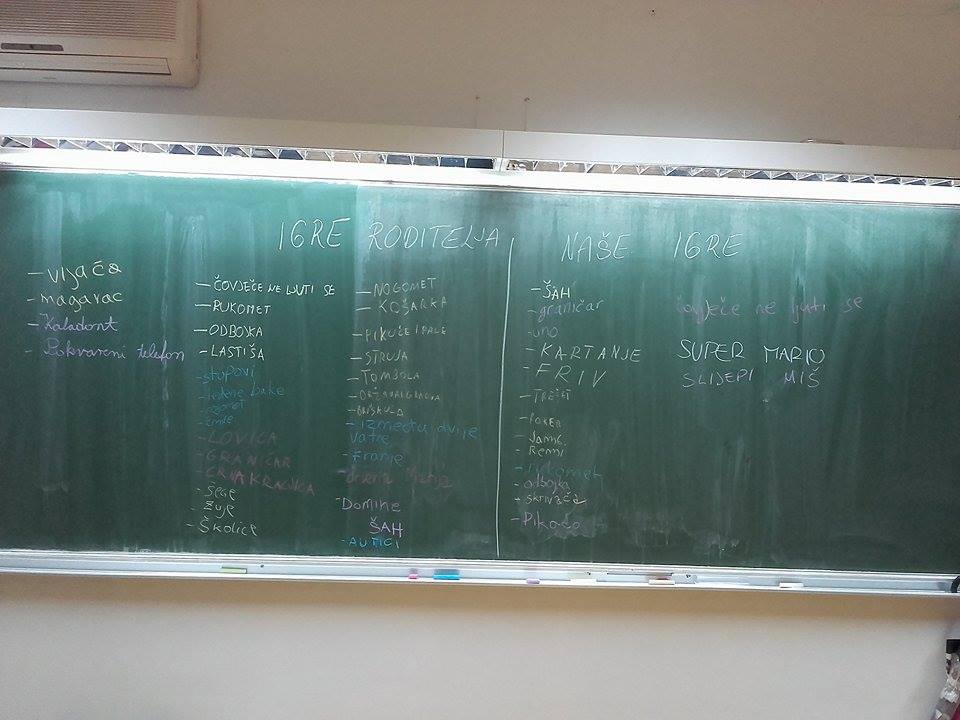 IGRE RODITELJA
- vijača
- magarac
- Kaladont
- Pokvareni telefon
- ČOVJEČE NE LJUTI SE
- RUKOMET
- ODBOJKA
- LASTIŠA
- stupovi
bake
- LOVICA
- GRANIČAR
- CRNA KRALJICA
- Žuje
- Školice
- NOGOMET
- KOŠARKA
- STRUJA
- TOMBOLA
- BRIŠKULA
- između dvije
vatre
- Franje
- Domine
ŠAH
- AUTIĆI
NAŠE IGRE
- ŠAH
- graničar
- uno
- KARTANJE
- FRIV
- TREŠET
- POKER
- Jamb
- Remi
- rukomet
- odbojka
- skrivača
- Pikado
čovječe ne ljuti se
SUPER MARIO
SLIJEPI MIŠ